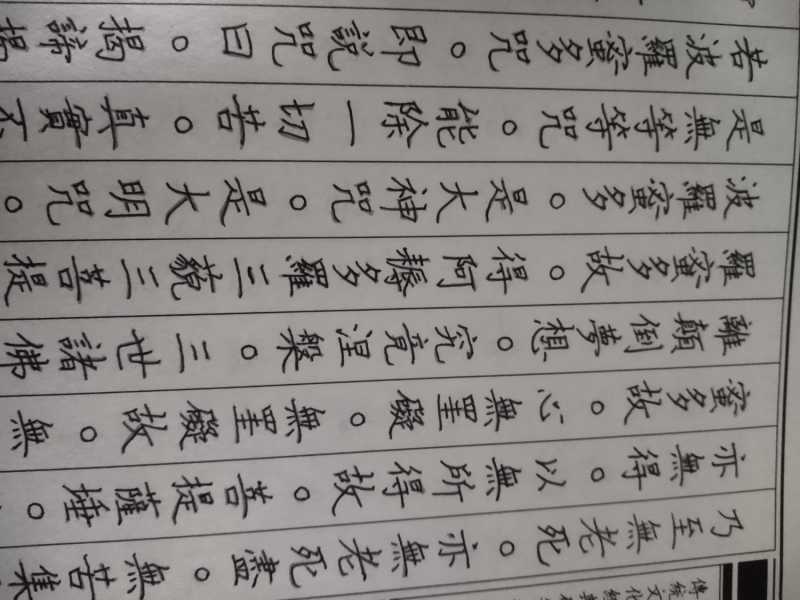 傳統
文化經
乃至無老死。亦無老死盡。無苦集
亦無得。以無所得故。菩提薩埵。
蜜多故。心無罣礙。無罣礙故。無
離顛倒夢想。究竟涅槃。三世諸佛
羅蜜多故。得阿耨多羅三藐三菩提
波羅蜜多。是大神咒。是大明咒。
是無等等咒。能除一切苦。真實不
若波羅蜜多咒。即說咒曰。揭諦揭